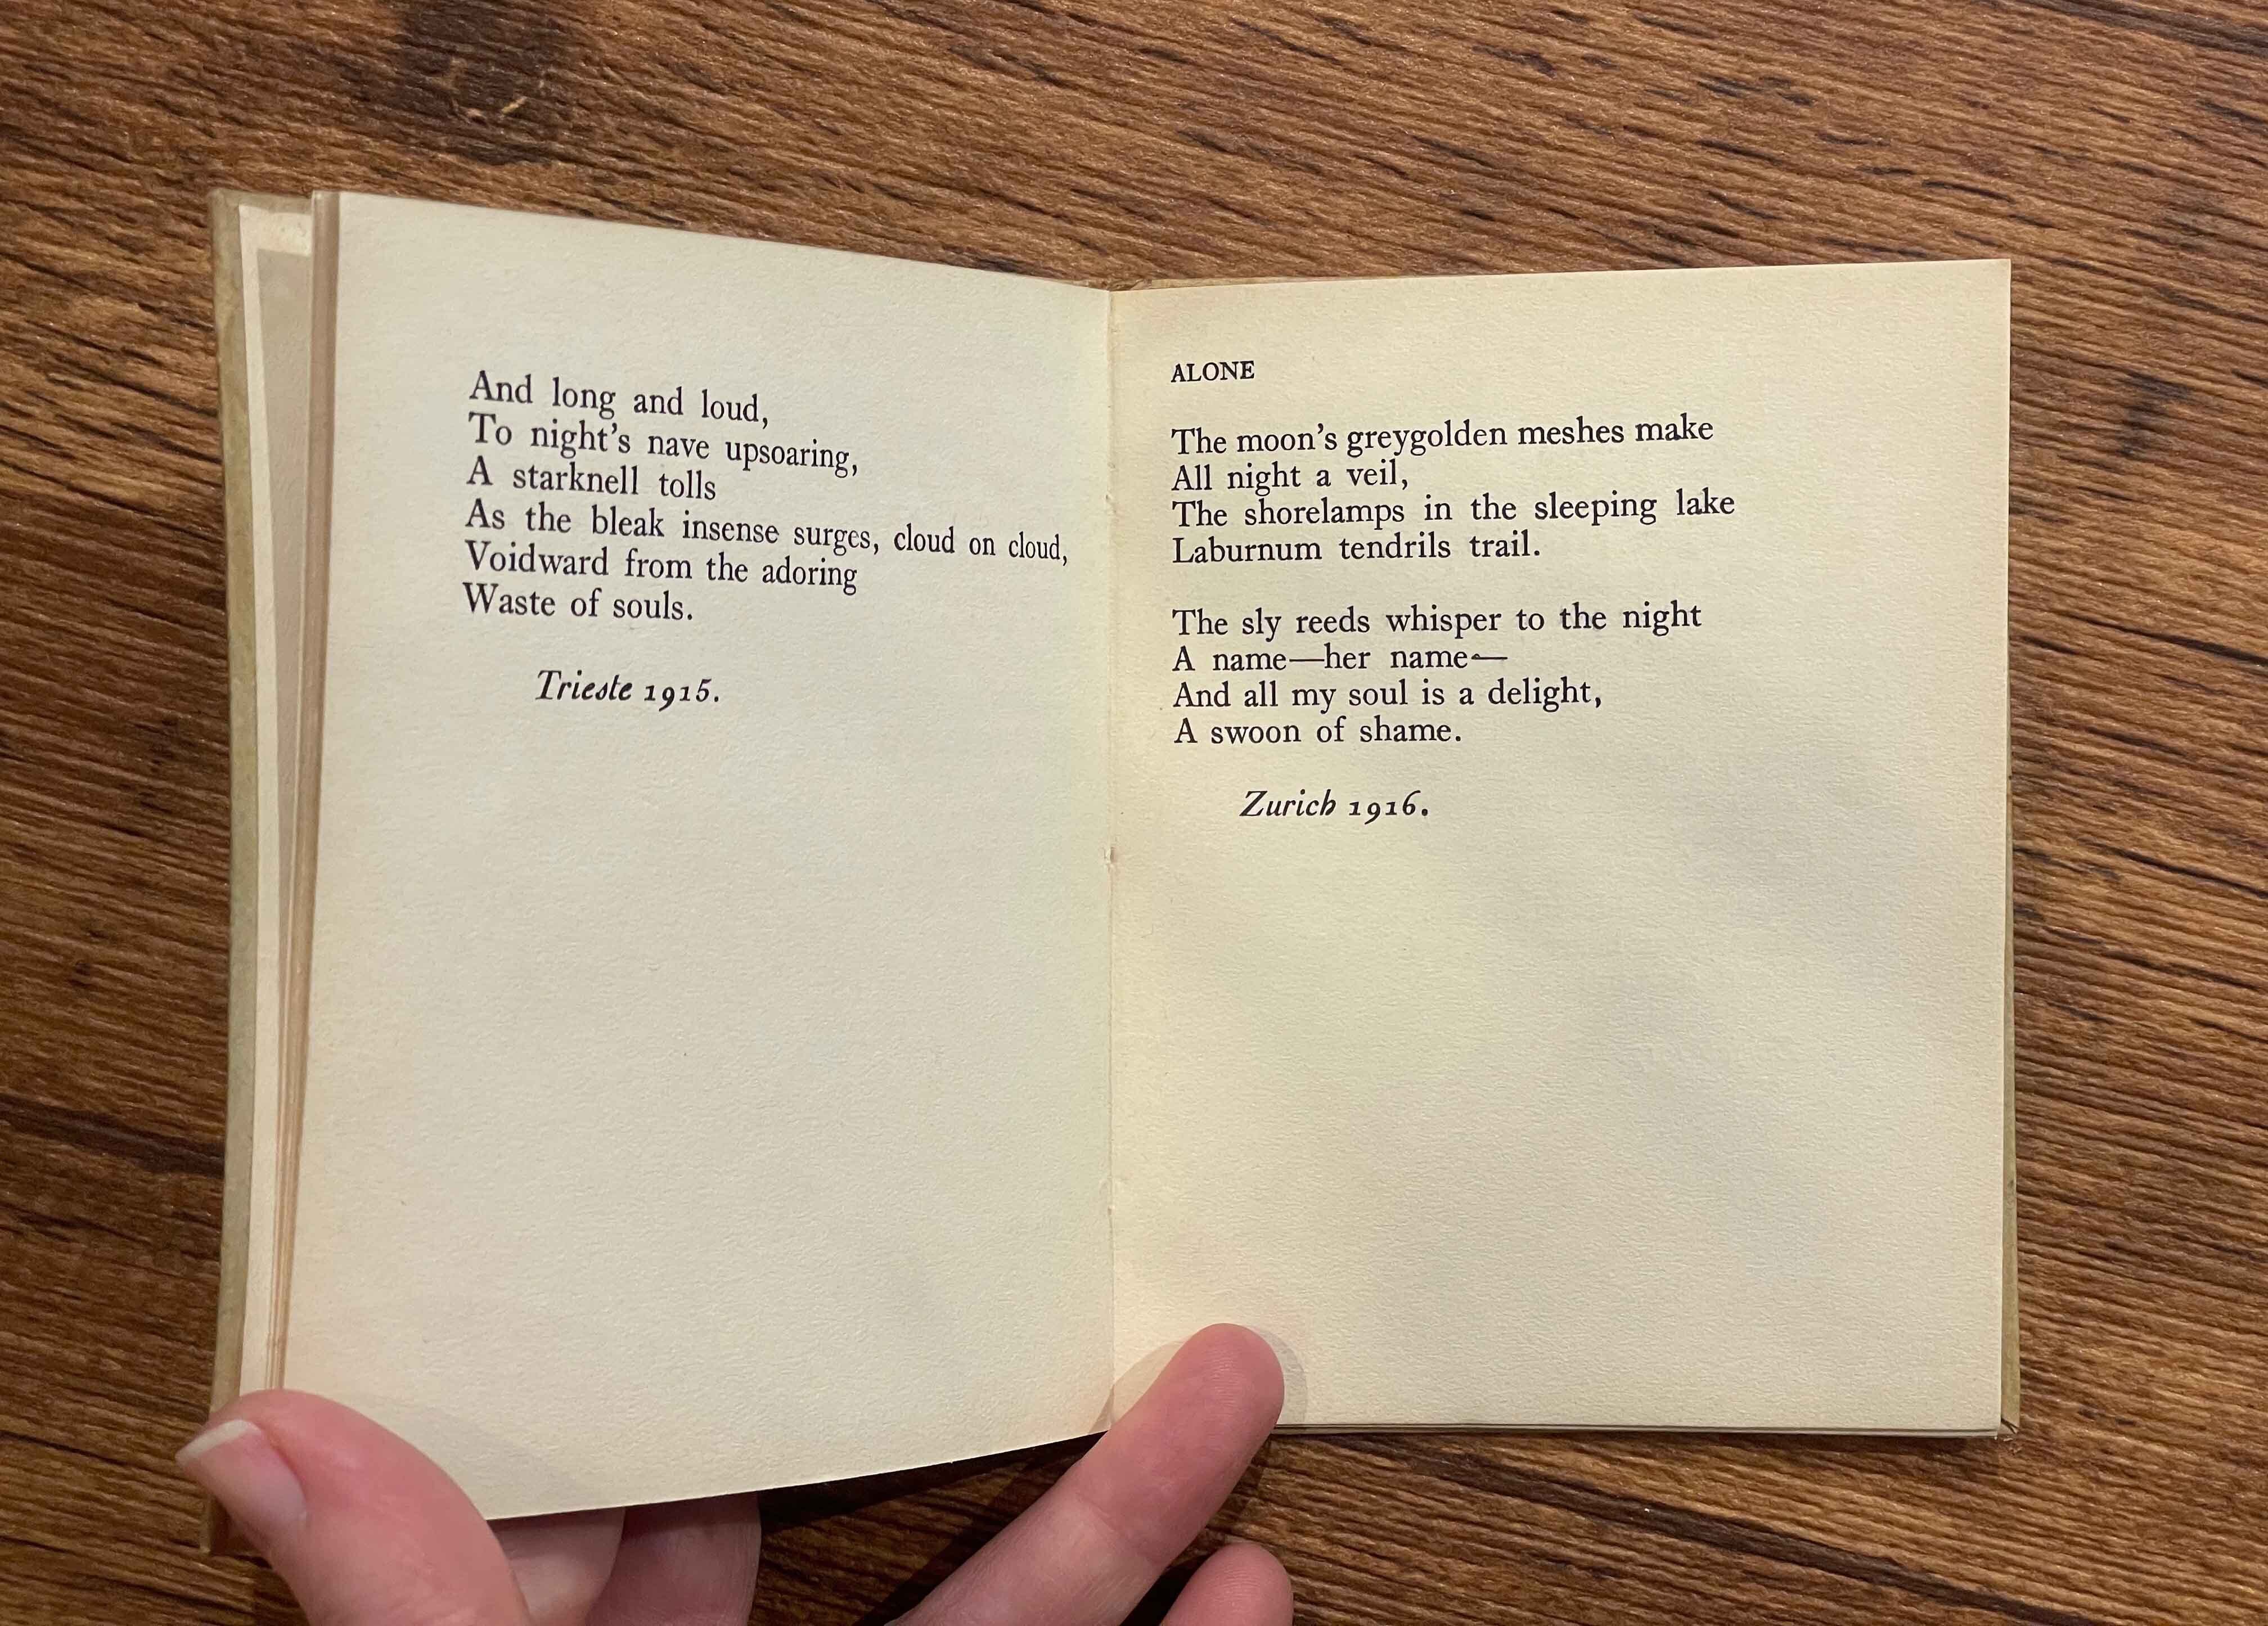 And long and loud,
To night's nave upsoaring,
A starknell tolls
As the bleak insense surges, cloud on cloud,
Voidward from the adoring
Waste of souls.
Trieste 1915.
ALONE
The moon's greygolden meshes make
All night a veil,
The shorelamps in the sleeping lake
Laburnum tendrils trail.
The sly reeds whisper to the night
A name—her name—
And all my soul is a delight,
A swoon of shame.
Zurich 1916.